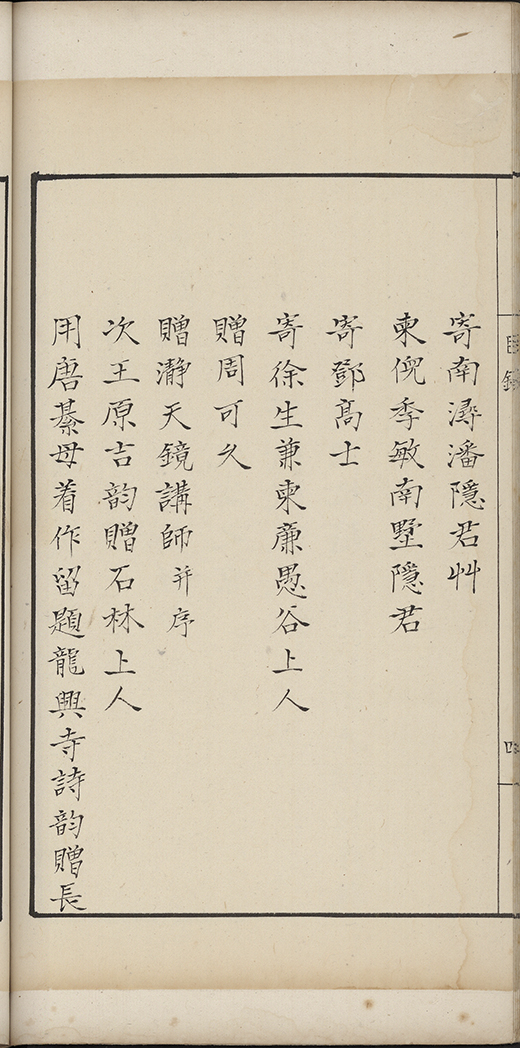 寄南潯潘隱君艸
柬倪季敏南墅隱君
寄鄧髙士
寄徐生兼柬廉愚谷上人
贈周可久
贈瀞天鏡講師 并序
次王原吉韵贈石林上人
用唐綦毋着作留題龍興寺詩韵贈長